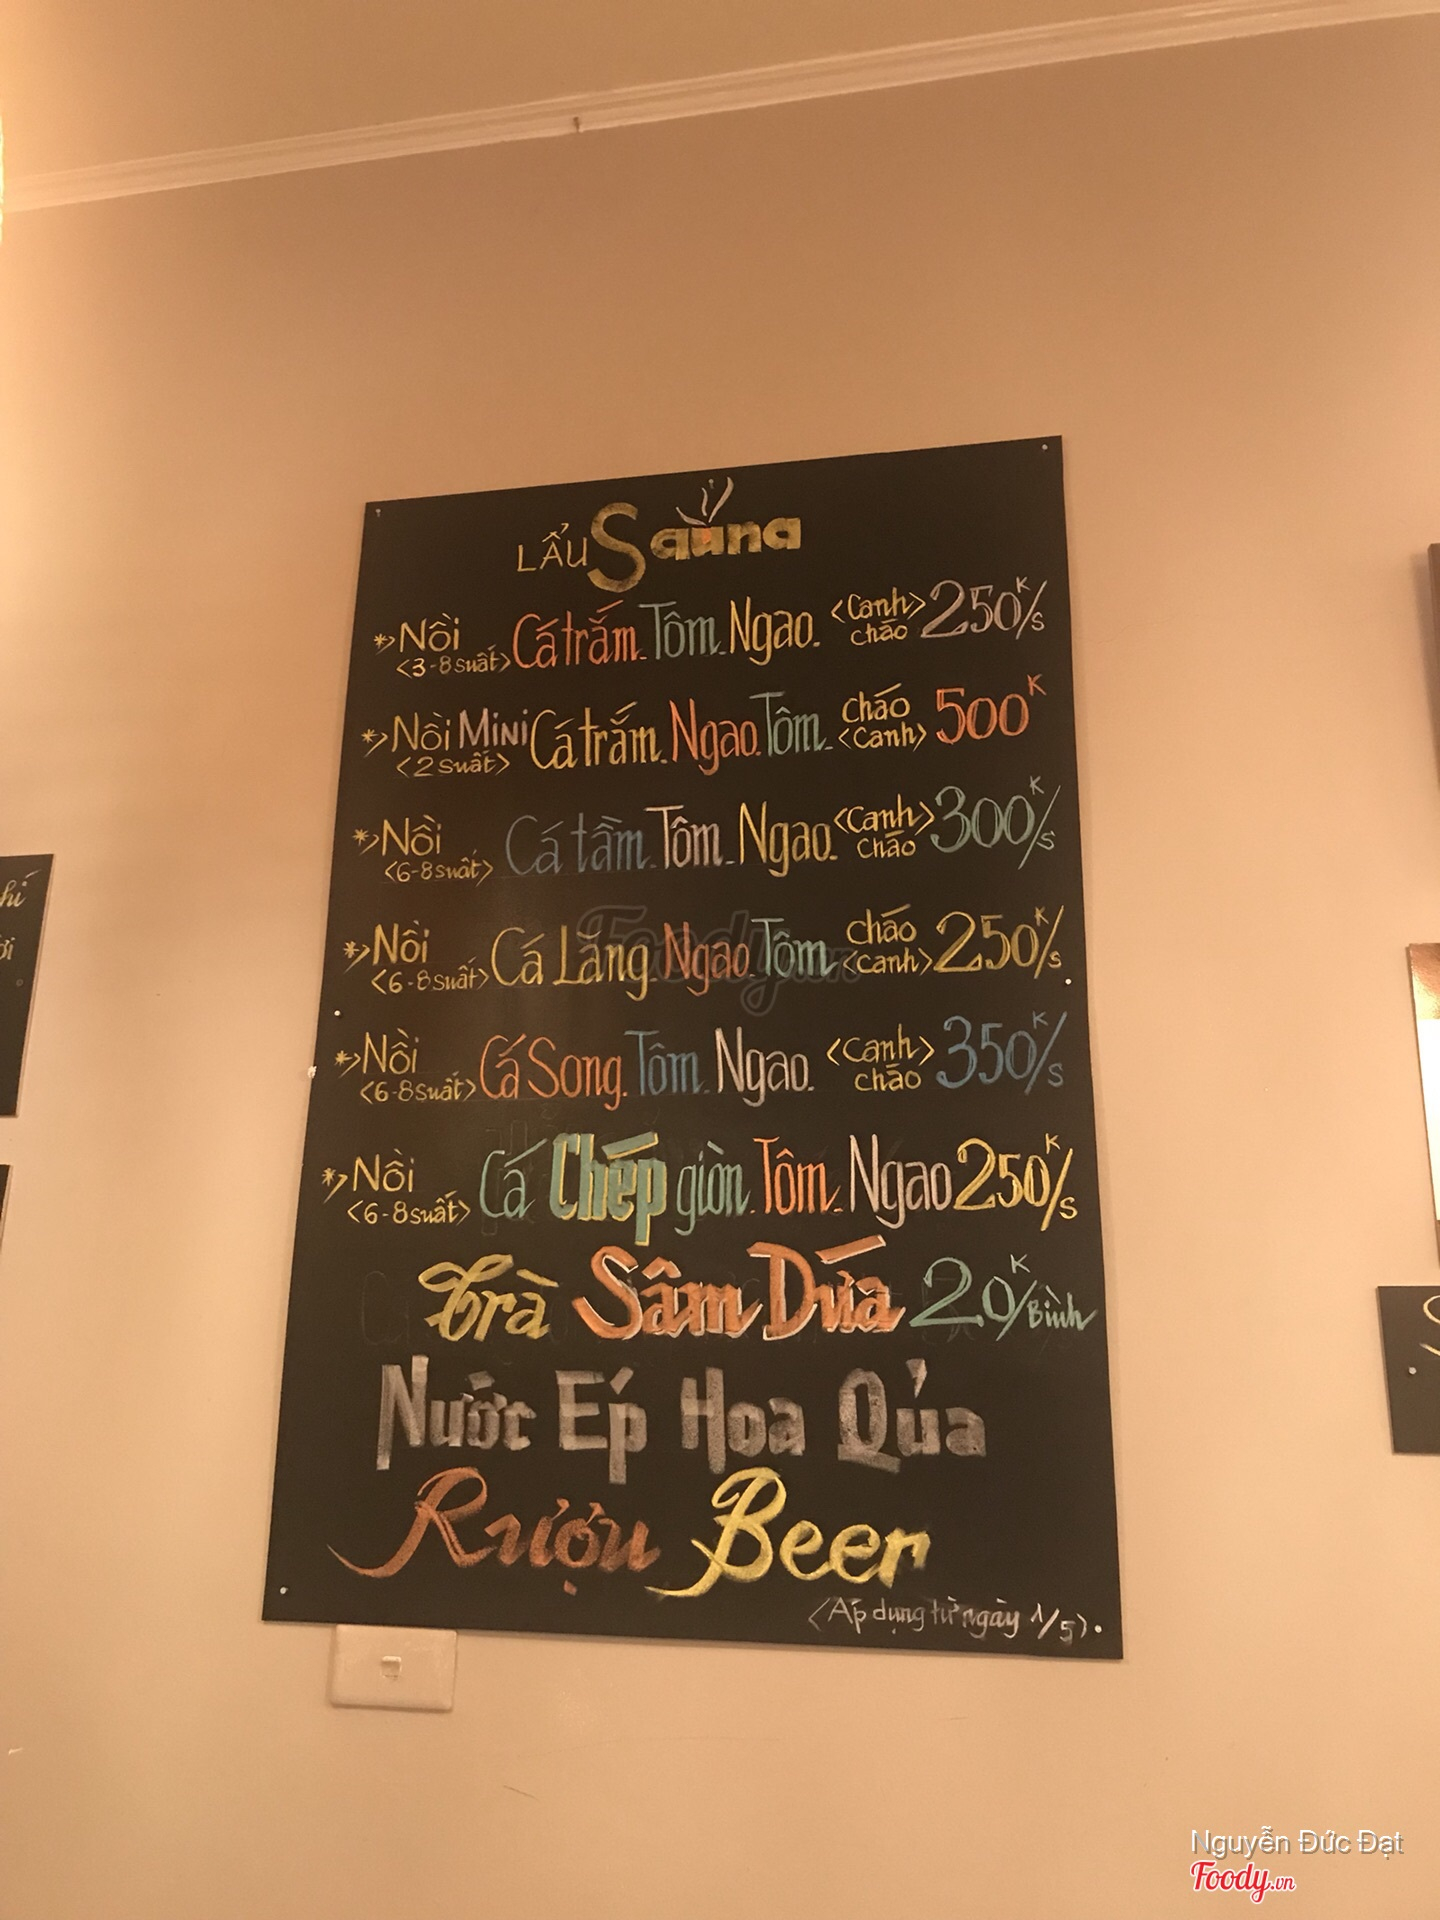 LẨU Sauna
*> Nồi Cá trắm. Tôm. Ngao. <Canh> cháo 250K/s
<3-8 suất>
*> Nồi Mini Cá trắm. Ngao. Tôm. cháo <canh> 500K
<2 suất>
*> Nồi Cá tầm. Tôm. Ngao. <Canh> cháo 300K/s
<6-8 suất>
*> Nồi Cá Lăng. Ngao. Tôm cháo <canh> 250K/s
<6-8 suất>
*> Nồi Cá Song. Tôm. Ngao. <Canh> cháo 350K/s
<6-8 suất>
*> Nồi Cá Chép giòn. Tôm. Ngao 250K/s
<6-8 suất>
Trà Sâm Dứa 20K/Bình
Nước Ép Hoa Qủa
Rượu Beer
<Áp dụng từ ngày 1/5>
Foody.vn
Nguyễn Đức Đạt
Foody.vn